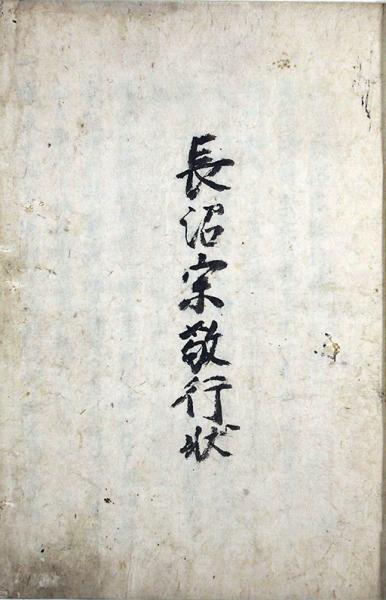 長沼宗敬行状